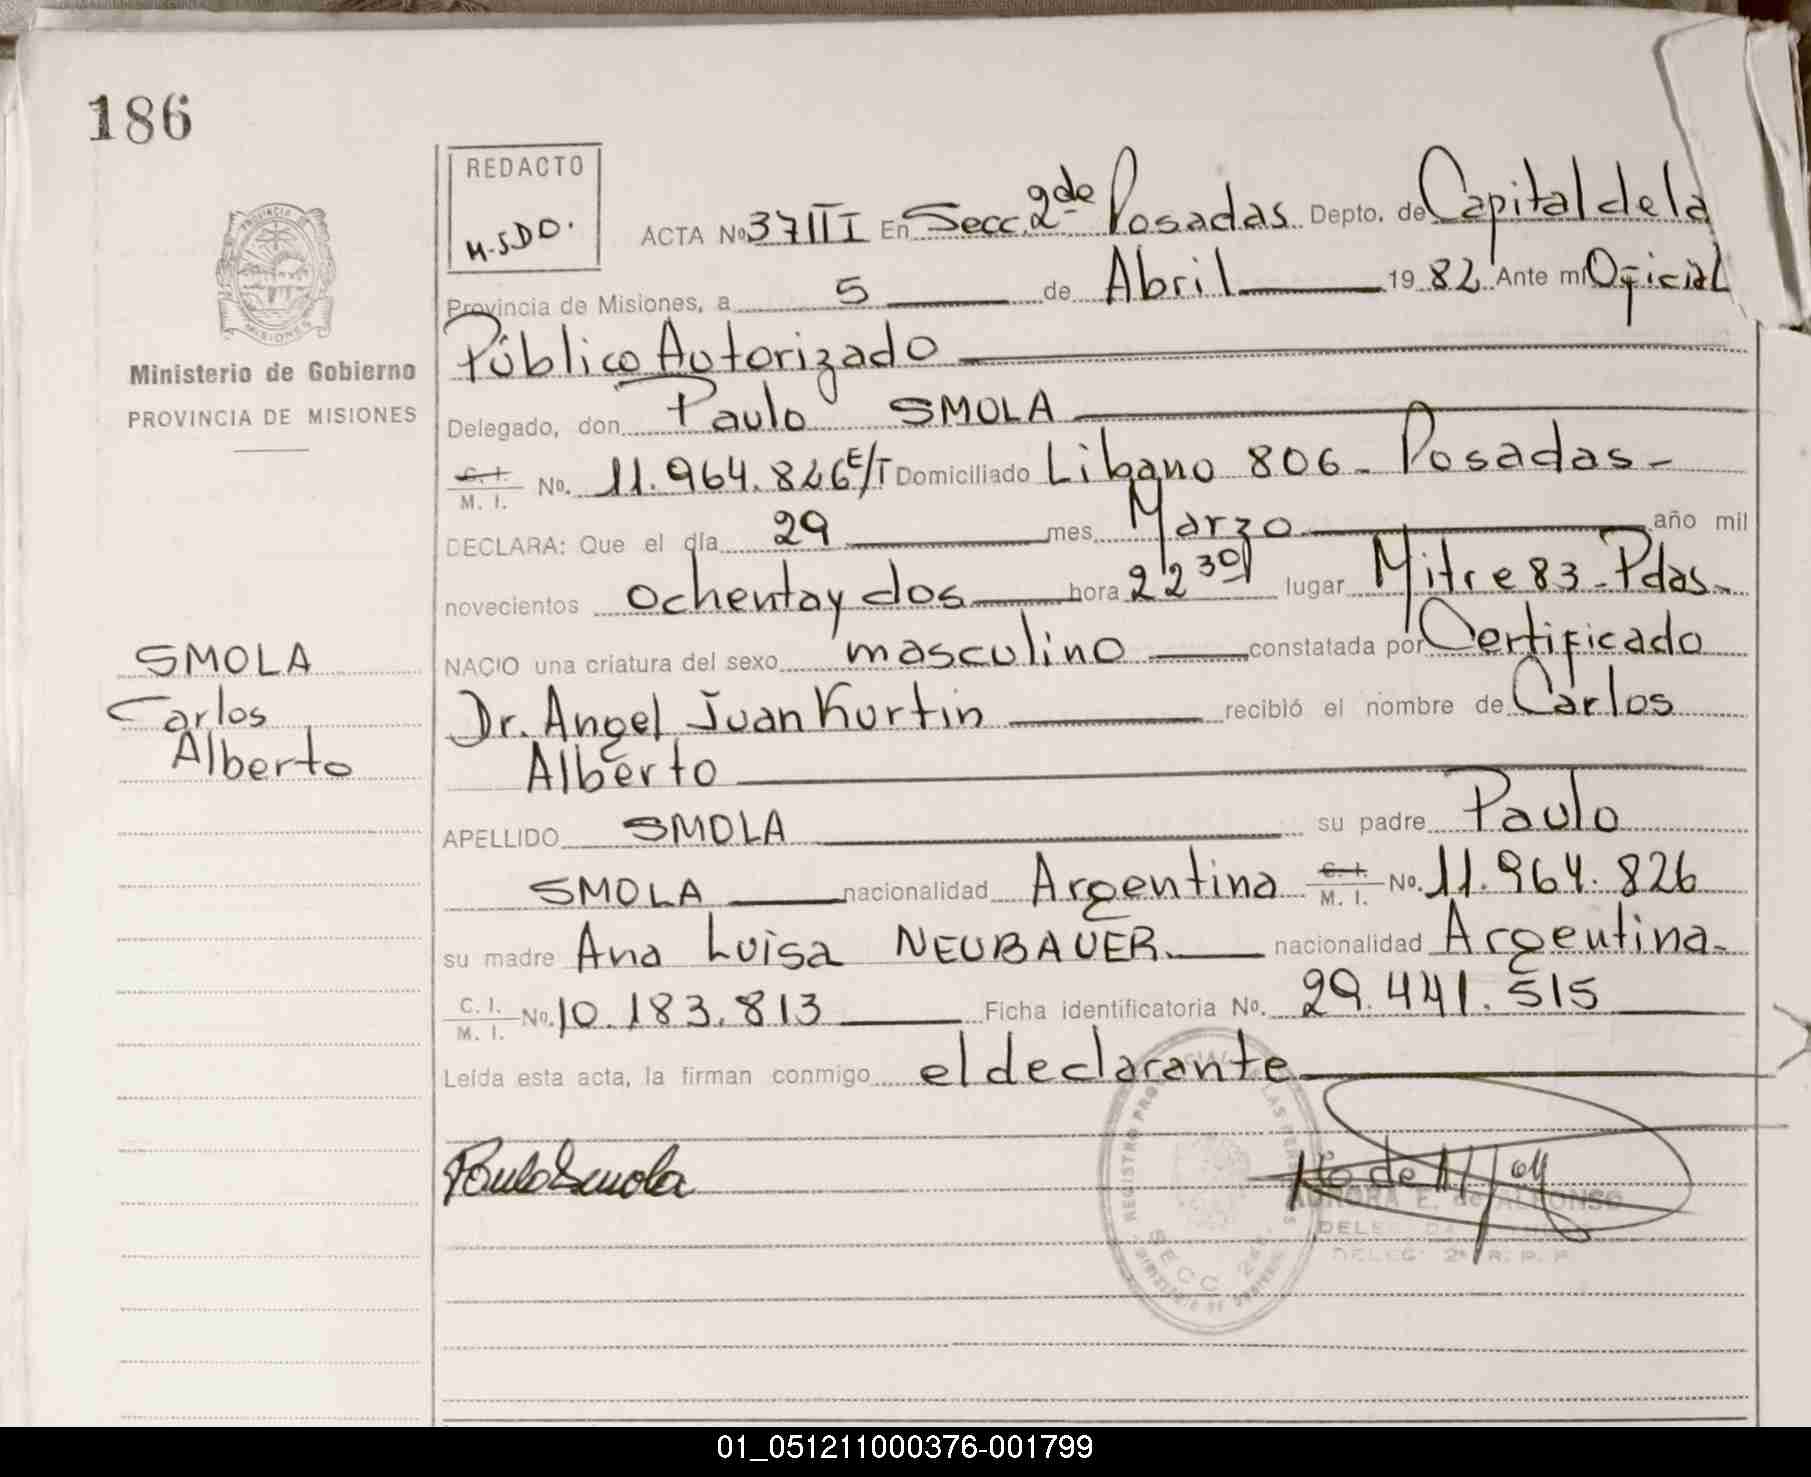 186
REDACTO
M-SDO.
ACTA No 37 III En Secc. 2de Posadas Depto. de Capital de la
Provincia de Misiones, a 5 de Abril 19 82 Ante mi Oficial
Público Autorizado
Ministerio de Gobierno
PROVINCIA DE MISIONES
Delegado, don Paulo SMOLA
C.I. M. I. No. 11.964.826 E/T Domiciliado Libano 806 - Posadas -
DECLARA: Que el día 29 mes Marzo año mil
novecientos ochenta y dos hora 22 30 lugar Mitre 83 - Pdas -
NACIO una criatura del sexo masculino constatada por Certificado
Dr. Angel Juan Kurtin recibió el nombre de Carlos
Alberto
SMOLA
Carlos
Alberto
APELLIDO SMOLA su padre Paulo
SMOLA nacionalidad Argentina C.I. M. I. No. 11.964.826
su madre Ana Luisa NEUBAUER. nacionalidad Argentina -
C. I. M. I. No. 10.183.813 Ficha identificatoria No. 29.441.515
Leída esta acta, la firman conmigo el declarante
Paulo Smola
REGISTRO
SECC. 2da
AURORA E. de ALFONSO
DELEG 2ª R. P. P
01_051211000376-001799